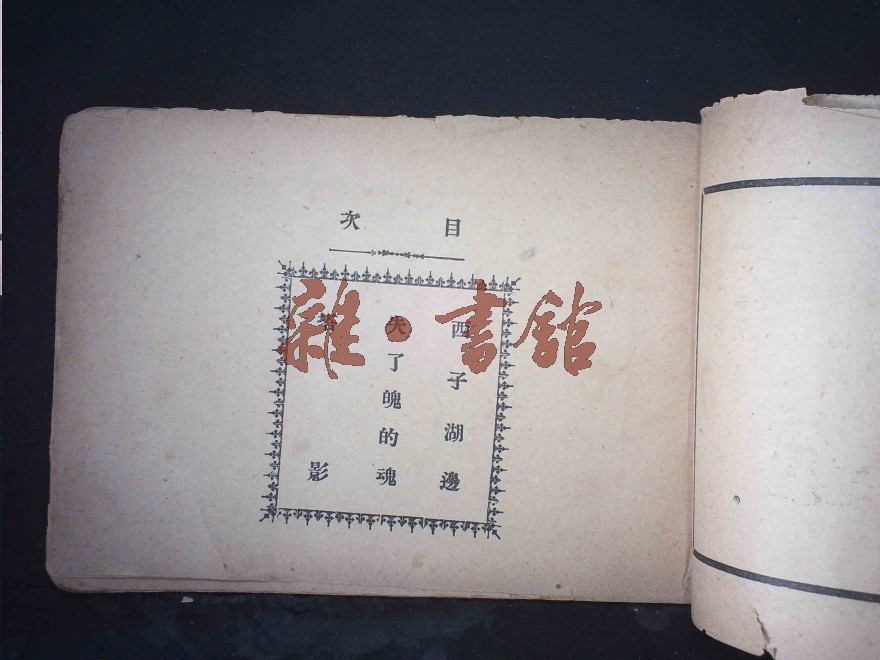 目次
西子湖邊
失了魄的魂
塔影
雜·書館